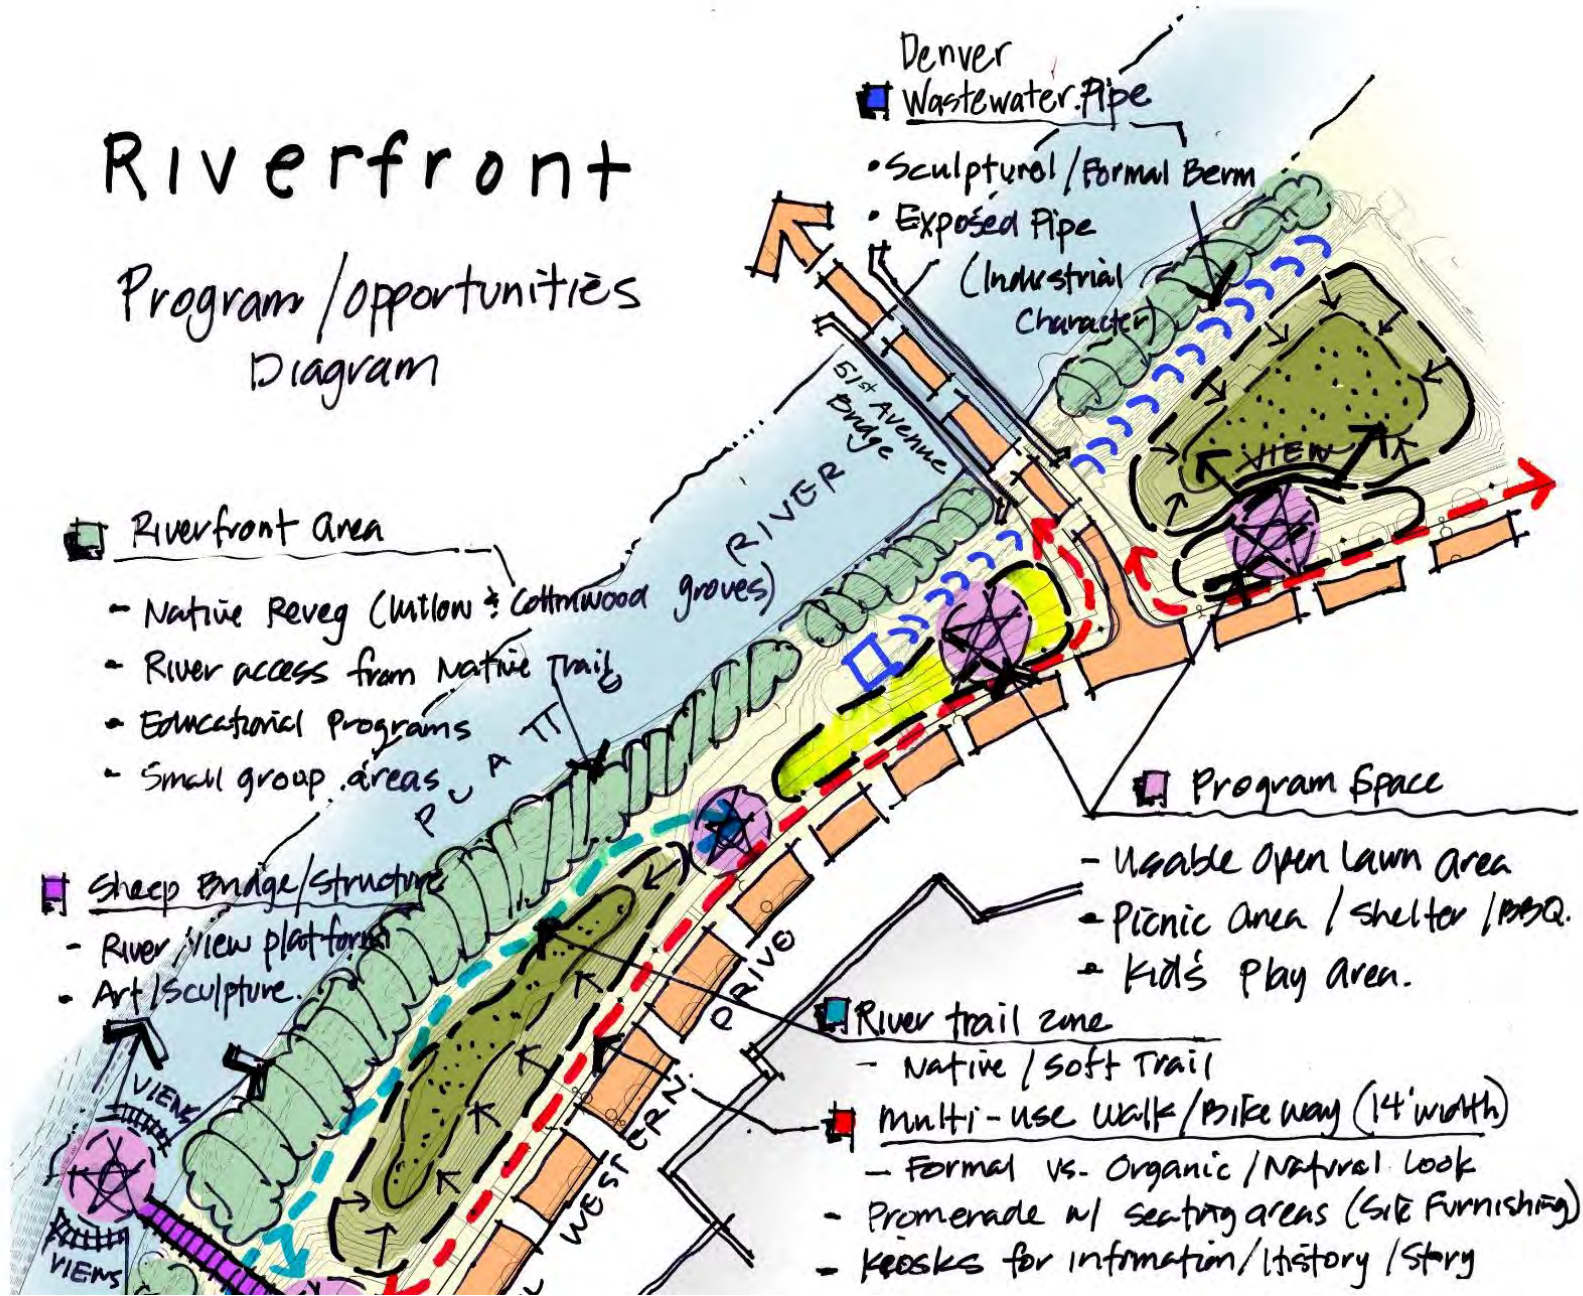 Riverfront
Program/opportunities
Diagram
Denver
Wastewater Pipe
• Sculptural/Formal Berm
• Exposed Pipe
(Industrial
Character)
51st Avenue
Bridge
VIEW
PLATTE RIVER
Riverfront area
- Native Reveg (Willow & Cottonwood groves)
- River access from Native Trail
- Educational Programs
- Small group areas
Sheep Bridge/structure
- River view platform
- Art/Sculpture.
VIEWS
VIEWS
Program Space
- Usable open lawn area
- Picnic area / shelter / BBQ.
- Kid's Play area.
River trail zone
- Native / Soft Trail
Multi-use walk/Bikeway (14' width)
- Formal vs. Organic/Natural Look
- Promenade w/ seating areas (Site Furnishing)
- Keosks for information/History/Story
WESTERN DRIVE